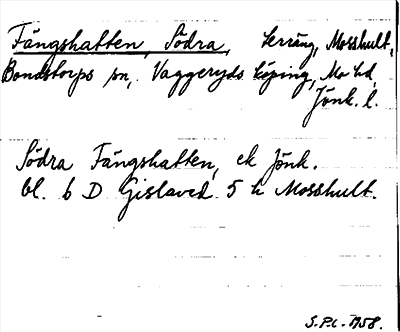 Fängshatten, Södra, terräng, Mosshult,
Bondstorps sn, Vaggeryds köping, Mo hd,
Jönk. l.
Södra Fängshatten, ek Jönk.
bl. 6 D Gislaved 5 h Mosshult.
S.P.C. 1958.